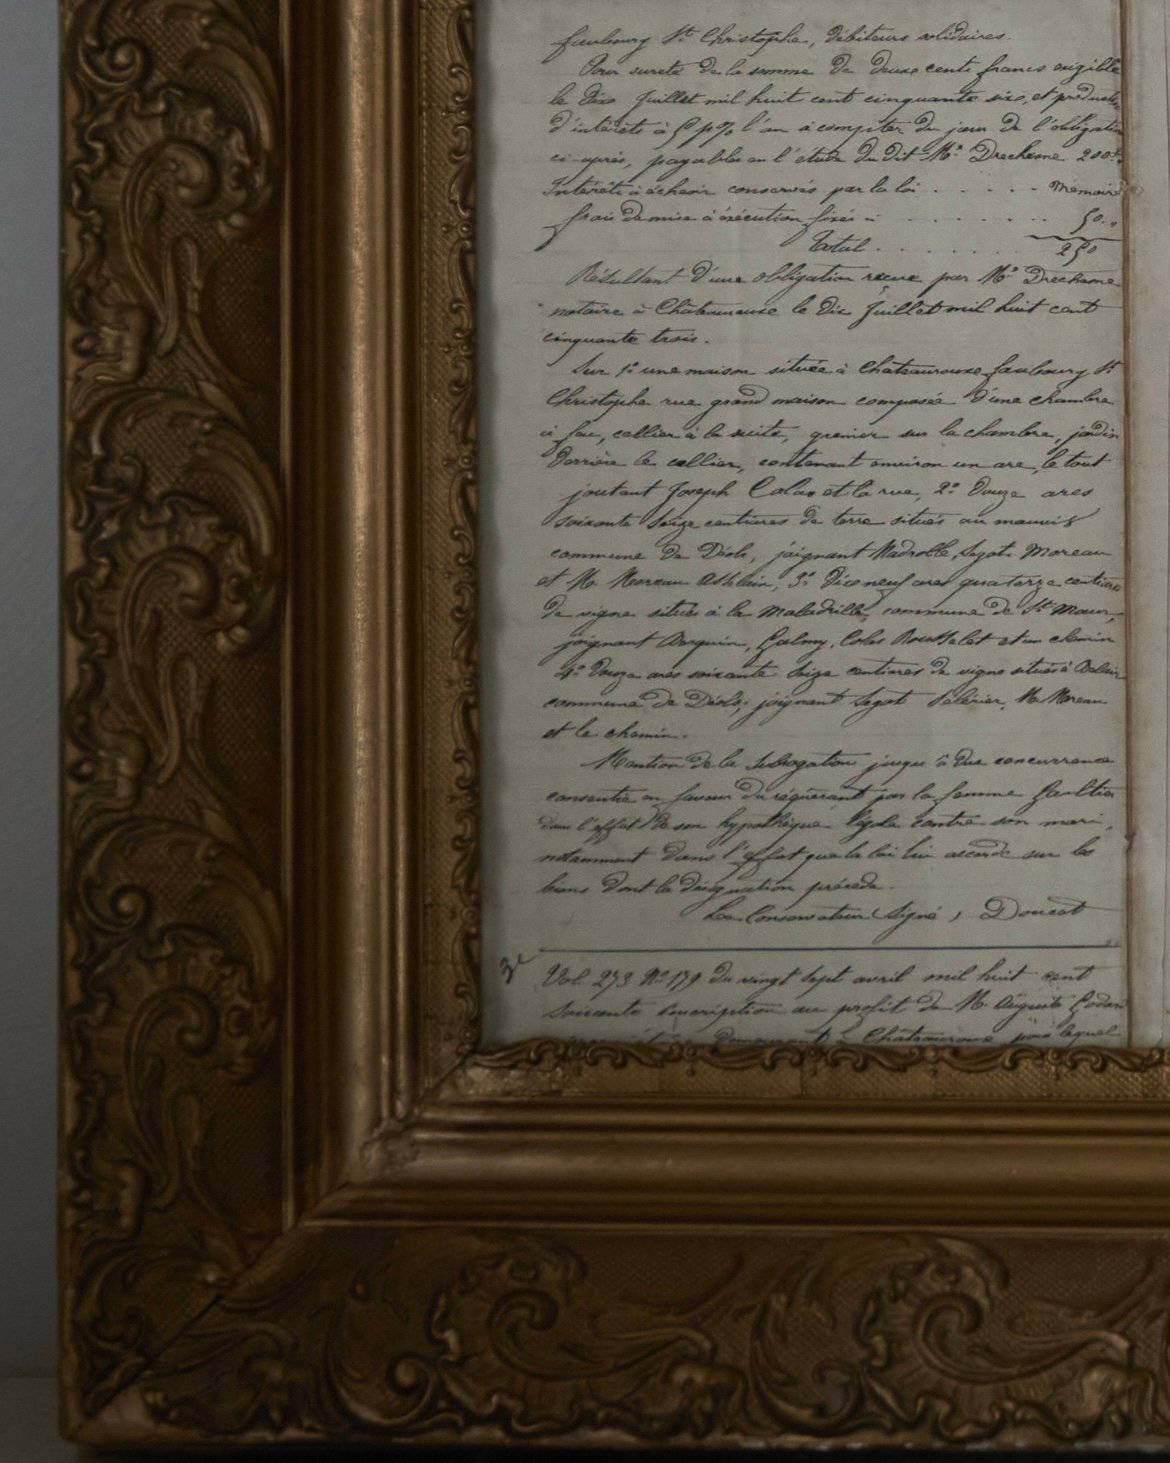 faubourg St Christophe, débiteurs solidaires.
Pour sureté de la somme de deux cents francs exigible
le dix Juillet mil huit cent cinquante six, et produisant
d'intérêts à 5 p% l'an à compter du jour de l'obligation
ci-après, payables en l'étude du dit Me Drechesne 200f.
Intérêts à échoir conservés par la loi . . . . . Mémoire
frais de mise à éxécution fixés à . . . . . . . 50..
Total . . . . . . 250
Résultant d'une obligation reçue par Me Drechesne
notaire à Châteauroux le dix Juillet mil huit cent
cinquante trois.
Sur 1° une maison située à Châteauroux faubourg St
Christophe rue grand maison composée d'une chambre
à feu, cellier à la suite, grenier sur la chambre, jardin
derrière le cellier, contenant environ un are, le tout
joutant Joseph Colas et la rue, 2° Douze ares
soixante Seize centiares de terre situés au
commune de Déols, joignant Madrolle, Segot. Moreau
et M. Moreau 3° Dix neuf ares quatorze centiares
de vigne situés à la Maladrille, commune de St Maur,
joignant Colas Rousselet et un chemin
4° Douze ares soixante Seize centiares de vigne situés à
commune de Déols, joignant Segot M. Moreau
et le chemin.
Mention de la Subrogation jusqu'à due concurrence
consentie en faveur du réquérant par la femme Gaultier
dans l'effet de son hypothèque légale contre son mari,
notamment dans l'effet que la loi lui accorde sur les
biens dont la désignation précède.
Le Conservateur Signé, Doucet
Vol. 273 No 179 du vingt Sept avril mil huit cent
Soixante Inscription au profit de M. Auguste Godan
demeurant à Châteauroux pour lequel